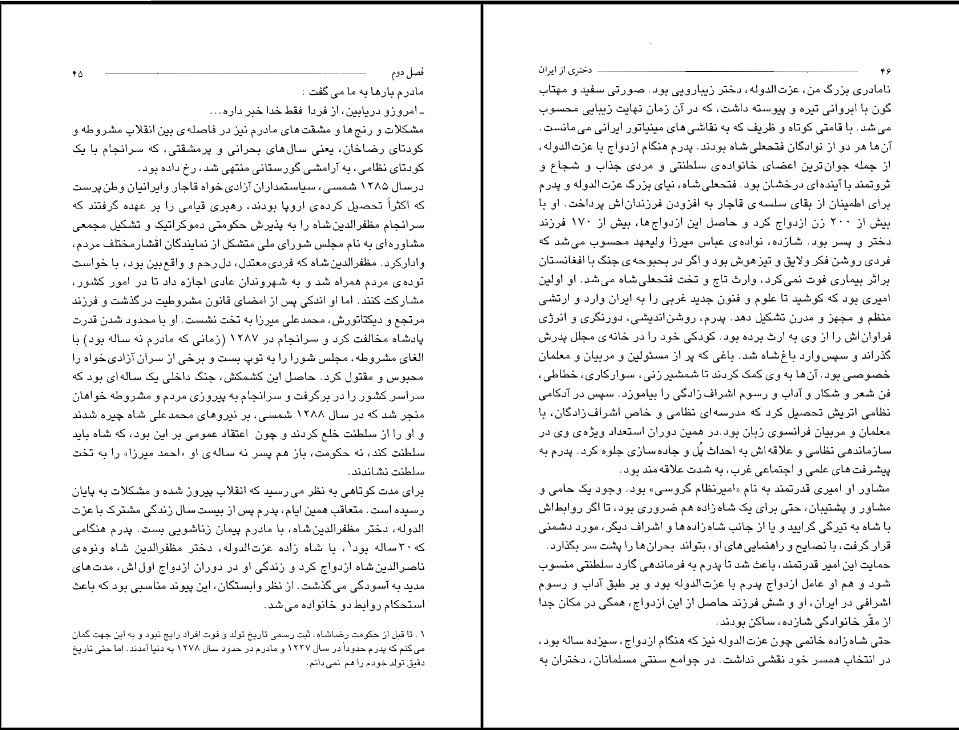 فصل دوم ۴۵
مادرم بارها به ما می‌گفت :
ـ امروزو دریابین، از فردا فقط خدا خبر داره...
مشکلات و رنج‌ها و مشقت‌های مادرم نیز در فاصله‌ی بین انقلاب مشروطه و
کودتای رضاخان، یعنی سال‌های بحرانی و پرمشقتی، که سرانجام با یک
کودتای نظامی، به آرامشی گورستانی منتهی شد، رخ داده بود.
درسال ۱۲۸۵ شمسی، سیاستمداران آزادی‌خواه قاجار وایرانیان وطن‌پرست
که اکثراً تحصیل کرده‌ی اروپا بودند، رهبری قیامی را بر عهده گرفتند که
سرانجام مظفرالدین‌شاه را به پذیرش حکومتی دموکراتیک و تشکیل مجمعی
مشاوره‌ای به نام مجلس شورای ملی متشکل از نمایندگان اقشارمختلف مردم،
وادارکرد. مظفرالدین‌شاه که فردی معتدل، دل‌رحم و واقع‌بین بود، با خواست
توده‌ی مردم همراه شد و به شهروندان عادی اجازه داد تا در امور کشور،
مشارکت کنند. اما او اندکی پس از امضای قانون مشروطیت درگذشت و فرزند
مرتجع و دیکتاتورش، محمدعلی میرزا به تخت نشست. او با محدود شدن قدرت
پادشاه مخالفت کرد و سرانجام در ۱۲۸۷ (زمانی که مادرم نه ساله بود) با
الغای مشروطه، مجلس شورا را به توپ بست و برخی از سران آزادی‌خواه را
محبوس و مقتول کرد. حاصل این کشمکش، جنگ داخلی یک ساله‌ای بود که
سراسر کشور را در برگرفت و سرانجام به پیروزی مردم و مشروطه خواهان
منجر شد که در سال ۱۲۸۸ شمسی، بر نیروهای محمدعلی شاه چیره شدند
و او را از سلطنت خلع کردند و چون اعتقاد عمومی بر این بود، که شاه باید
سلطنت کند، نه حکومت، باز هم پسر نه ساله‌ی او «احمد میرزا» را به تخت
سلطنت نشاندند.
برای مدت کوتاهی به نظر می‌رسید که انقلاب پیروز شده و مشکلات به پایان
رسیده است. متعاقب همین ایام، پدرم پس از بیست سال زندگی مشترک با عزت
الدوله، دختر مظفرالدین‌شاه، با مادرم پیمان زناشویی بست. پدرم هنگامی
که ۳۰ ساله بود۱، با شاه زاده عزت‌الدوله، دختر مظفرالدین شاه ونوه‌ی
ناصرالدین‌شاه ازدواج کرد و زندگی او در دوران ازدواج اول‌اش، مدت‌های
مدید به آسودگی می‌گذشت. از نظر وابستگان، این پیوند مناسبی بود که باعث
استحکام روابط دو خانواده می‌شد.
۱ . تا قبل از حکومت رضاشاه، ثبت رسمی تاریخ تولد و فوت افراد رایج نبود و به این جهت گمان
می‌کنم که پدرم حدوداً در سال ۱۲۳۷ و مادرم در حدود سال ۱۲۷۸ به دنیا آمدند. اما حتی تاریخ
دقیق تولد خودم را هم نمی‌دانم.
۴۶ دختری از ایران
نامادری بزرگ من، عزت‌الدوله، دختر زیبارویی بود. صورتی سفید و مهتاب
گون با ابروانی تیره و پیوسته داشت، که در آن زمان نهایت زیبایی محسوب
می‌شد. با قامتی کوتاه و ظریف که به نقاشی‌های مینیاتور ایرانی می‌مانست.
آن‌ها هر دو از نوادگان فتحعلی‌شاه بودند. پدرم هنگام ازدواج با عزت‌الدوله،
از جمله جوان‌ترین اعضای خانواده‌ی سلطنتی و مردی جذاب و شجاع و
ثروتمند با آینده‌ای درخشان بود. فتحعلی‌شاه، نیای بزرگ عزت‌الدوله و پدرم
برای اطمینان از بقای سلسه‌ی قاجار به افزودن فرزندان‌اش پرداخت. او با
بیش از ۲۰۰ زن ازدواج کرد و حاصل این ازدواج‌ها، بیش از ۱۷۰ فرزند
دختر و پسر بود. شازده، نواده‌ی عباس میرزا ولیعهد محسوب می‌شد که
فردی روشن فکر ولایق و تیزهوش بود و اگر در بحبوحه‌ی جنگ با افغانستان
براثر بیماری فوت نمی‌کرد، وارث تاج و تخت فتحعلی‌شاه می‌شد. او اولین
امیری بود که کوشید تا علوم و فنون جدید غربی را به ایران وارد و ارتشی
منظم و مجهز و مدرن تشکیل دهد. پدرم، روشن‌اندیشی، دورنگری و انرژی
فراوان‌اش را از وی به ارث برده بود. کودکی خود را در خانه‌ی مجلل پدرش
گذراند و سپس‌وارد باغ‌شاه شد. باغی که پر از مسئولین و مربیان و معلمان
خصوصی بود. آن‌ها به وی کمک کردند تا شمشیرزنی، سوارکاری، خطاطی،
فن شعر و شکار و آداب و رسوم اشراف‌زادگی را بیاموزد. سپس در آدکامی
نظامی اتریش تحصیل کرد که مدرسه‌ای نظامی و خاص اشراف‌زادگان، با
معلمان و مربیان فرانسوی زبان بود.در همین دوران استعداد ویژه‌ی وی در
سازماندهی نظامی و علاقه‌اش به احداث پُل و جاده‌سازی جلوه کرد. پدرم به
پیشرفت‌های علمی و اجتماعی غرب، به شدت علاقه‌مند بود.
مشاور او امیری قدرتمند به نام «امیرنظام گروسی» بود. وجود یک حامی و
مشاور و پشتیبان، حتی برای یک شاه‌زاده هم ضروری بود، تا اگر روابط‌اش
با شاه به تیرگی گرایید و یا از جانب شاه‌زاده‌ها و اشراف دیگر، مورد دشمنی
قرار گرفت، با نصایح و راهنمایی‌های او، بتواند بحران‌ها را پشت سر بگذارد.
حمایت این امیر قدرتمند، باعث شد تا پدرم به فرماندهی گارد سلطنتی منسوب
شود و هم او عامل ازدواج پدرم با عزت‌الدوله بود و بر طبق آداب و رسوم
اشرافی در ایران، او و شش فرزند حاصل از این ازدواج، همگی در مکان جدا
از مقّر خانوادگی شازده، ساکن بودند.
حتی شاه‌زاده خانمی چون عزت‌الدوله نیز که هنگام ازدواج، سیزده ساله بود،
در انتخاب همسر خود نقشی نداشت. در جوامع سنتی مسلمانان، دختران به